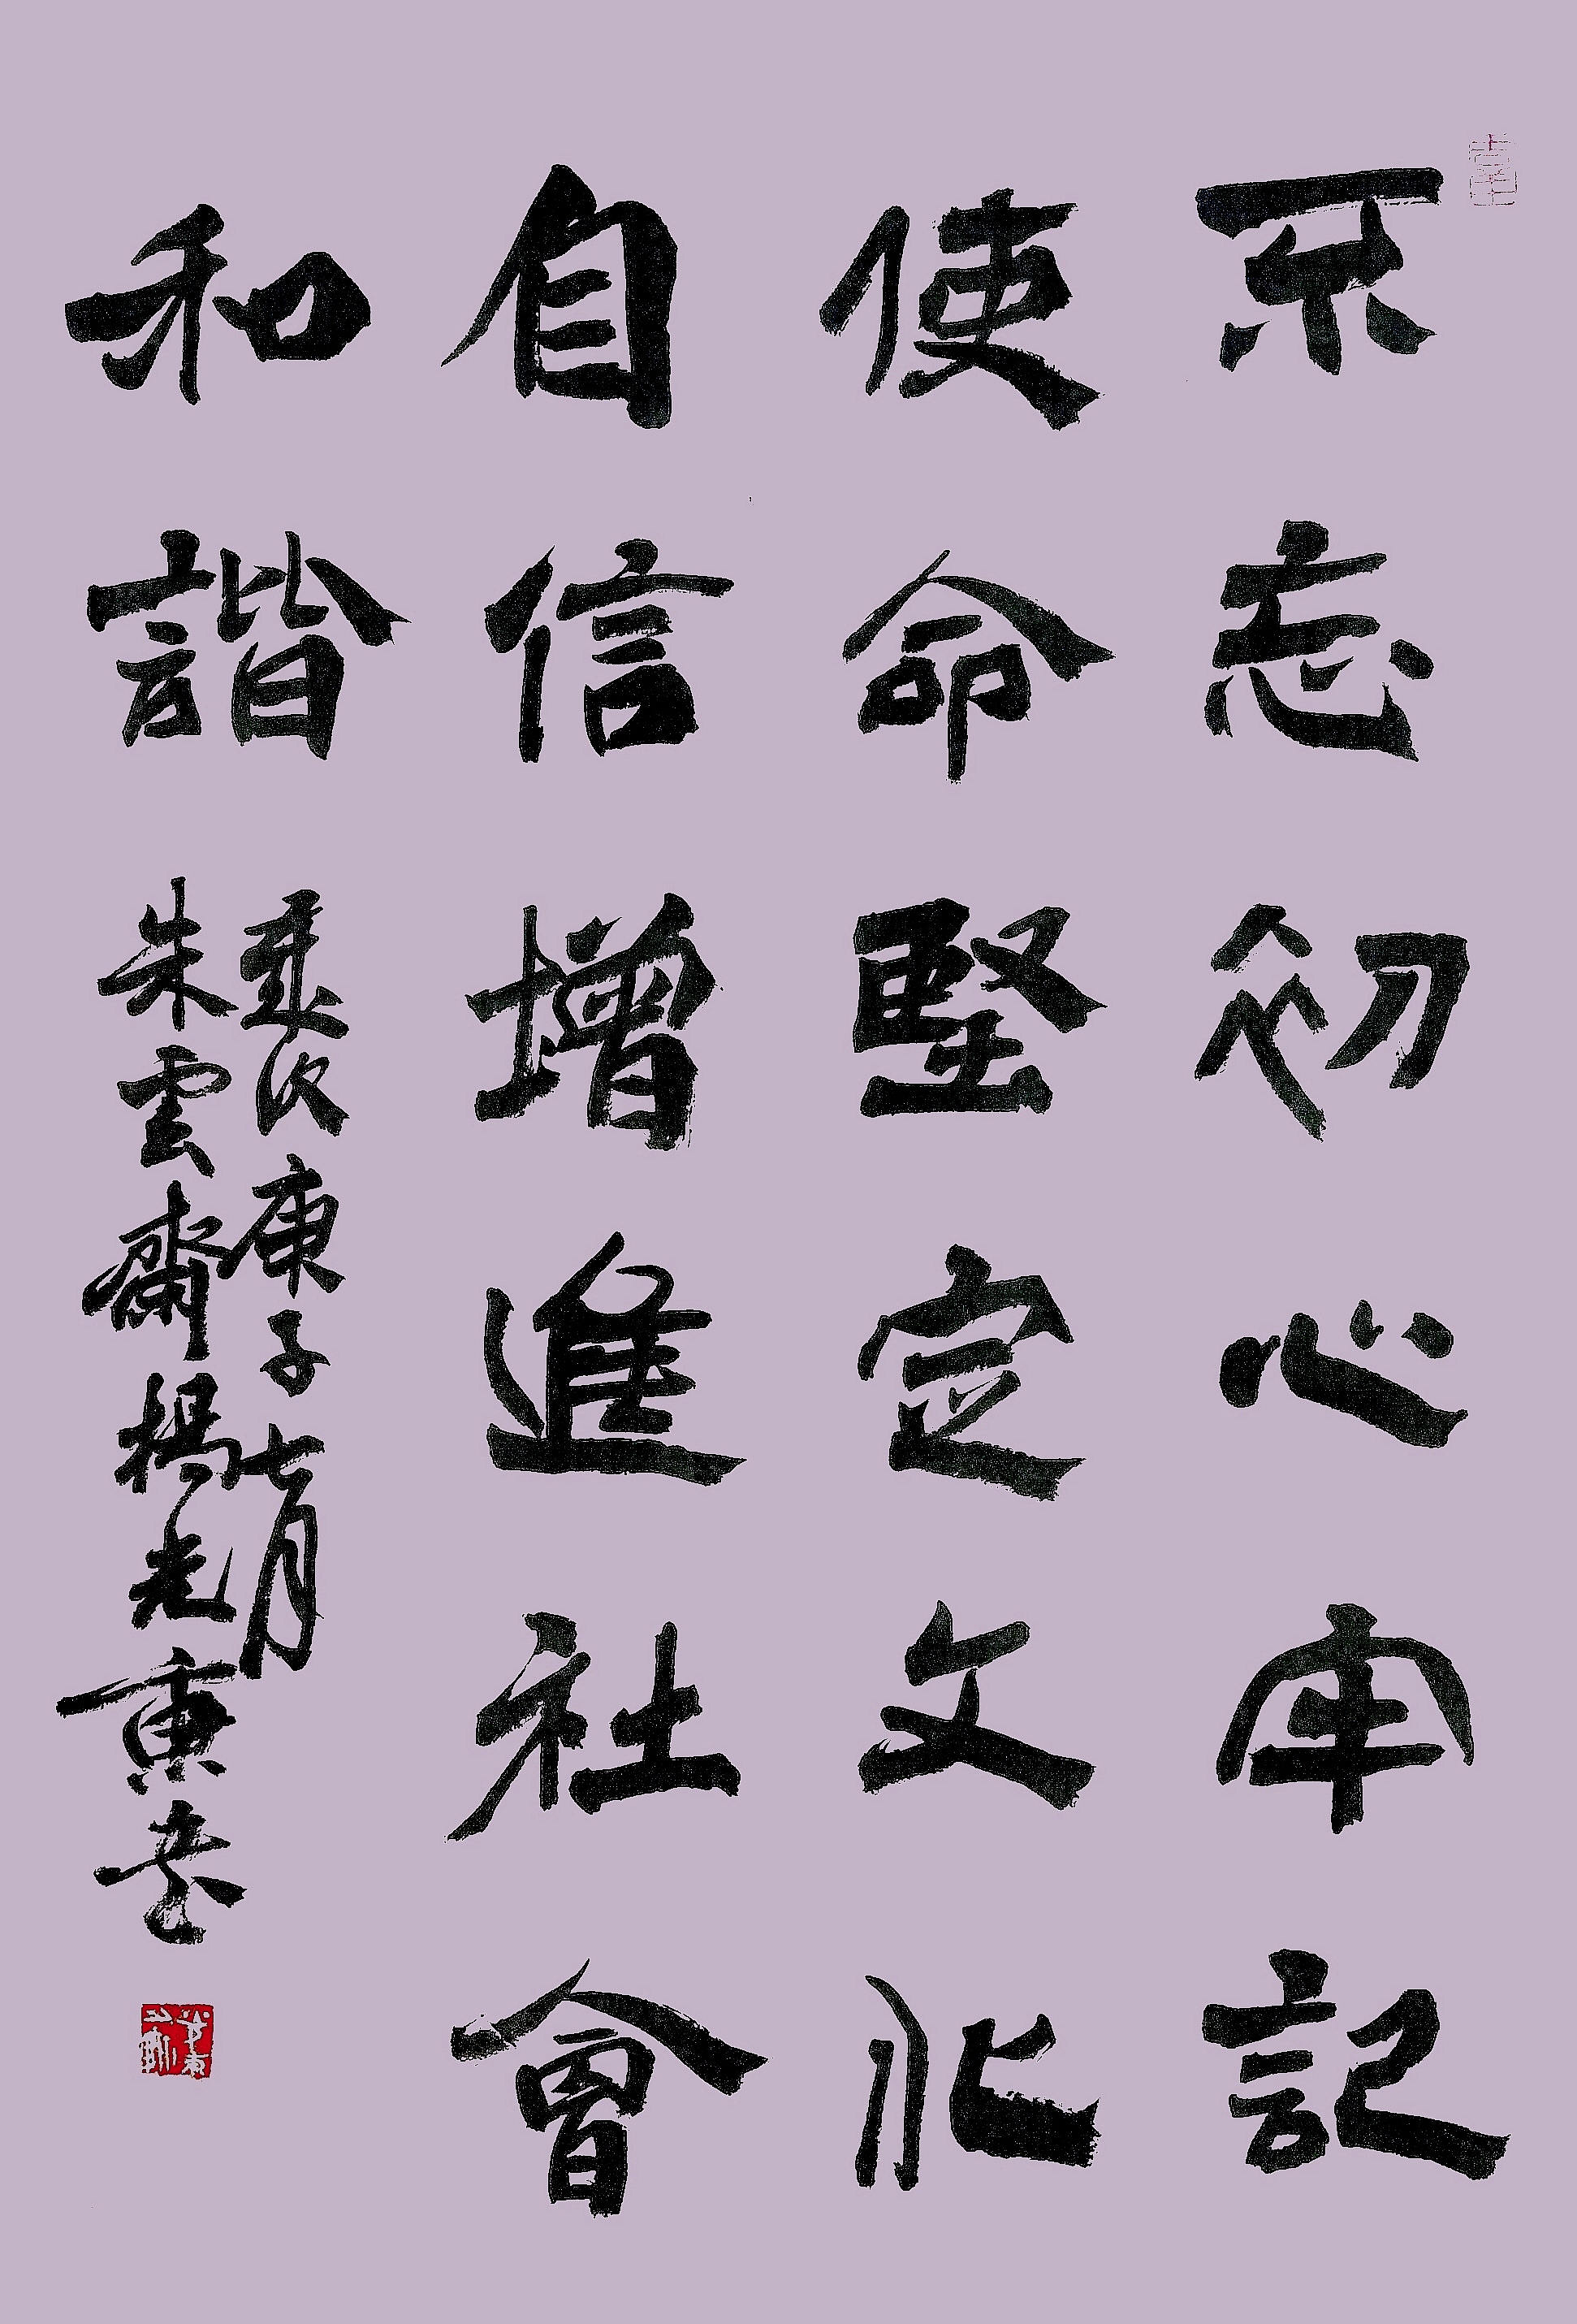 不忘初心牢記
使命堅定文化
自信增進社會
和諧
歲次庚子七月
朱雲齋楊光重書